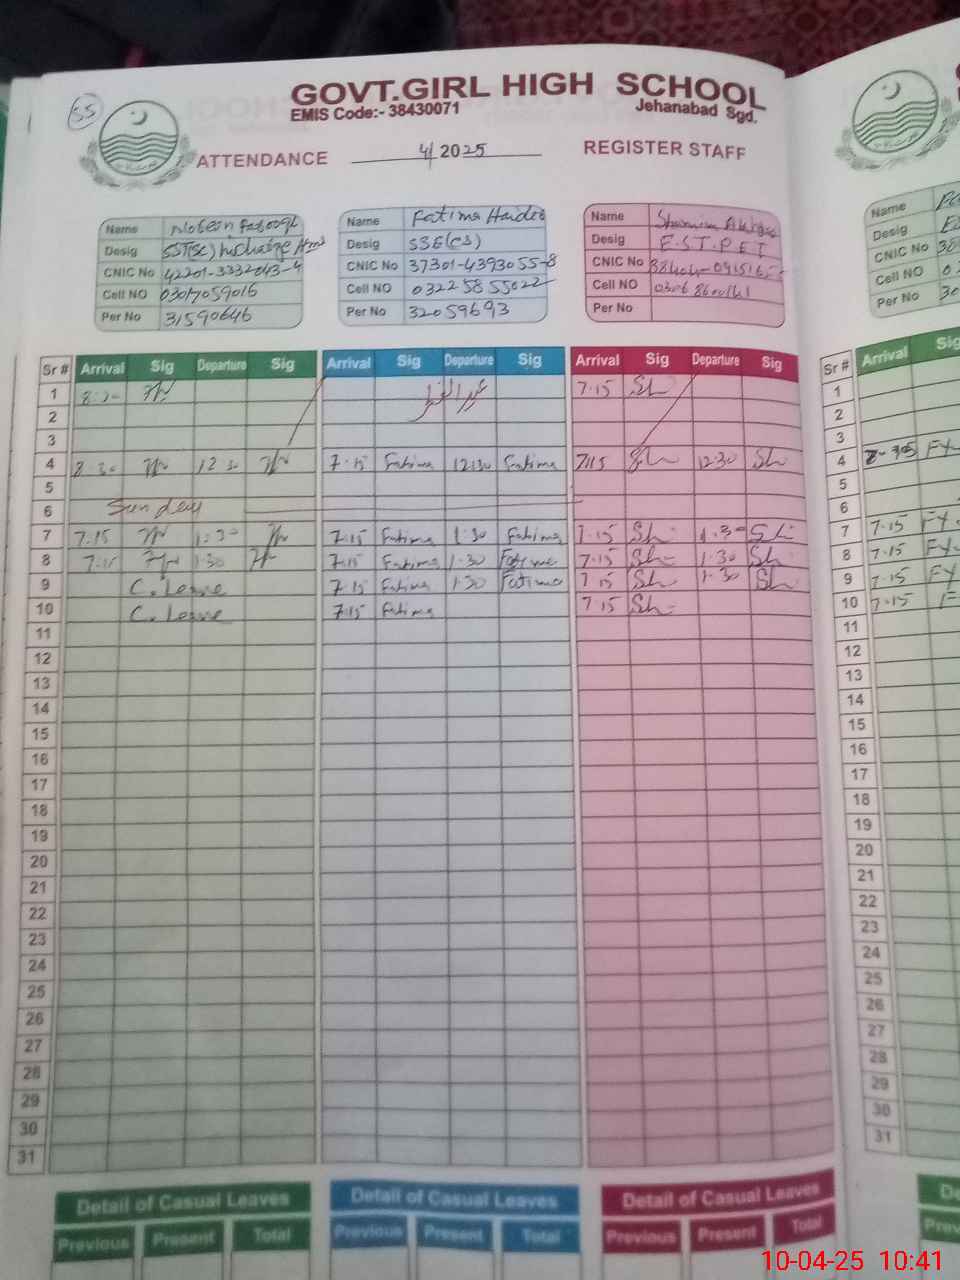 55
GOVT.GIRL HIGH SCHOOL
EMIS Code:- 38430071 Jehanabad Sgd.
ATTENDANCE 4/2025 REGISTER STAFF
Name Fatima Haider
Desig SSE(CS)
CNIC No 37301-4393055-8
Cell NO 0322 58 55022
Per No 32059693
Name
Desig SST(SC) Incharge Hm
CNIC No 42201-3332043-4
Cell NO 03017059016
Per No 31590646
Name
Desig E.S.T.PET
CNIC No
Cell NO 0306 8600161
Per No
Name
Desig
CNIC No 38
Cell NO 03
Per No 30
Sr # Arrival Sig Departure Sig Arrival Sig Departure Sig Arrival Sig Departure Sig Sr # Arrival Sig
1 عید الفطر 7.15 Sh 1
2 2
3 3
4 8.30 12.30 7.15 Fatima 12:30 Fatima 7.15 Sh 12.30 Sh 4
5 5
6 Sunday 6
7 7.15 1:30 7.15 Fatima 1.30 Fatima 7.15 Sh 1.30 Sh 7 7.15 FY
8 7.15 1.30 7.15 Fatima 1.30 Fatima 7.15 Sh 1.30 Sh 8 7.15 FY
9 C. Leave 7.15 Fatima 1.30 Fatima 7.15 Sh 1.30 Sh 9 7.15 FY
10 C. Leave 7.15 Fatima 7.15 Sh 10 7.15 F
11 11
12 12
13 13
14 14
15 15
16 16
17 17
18 18
19 19
20 20
21 21
22 22
23 23
24 24
25 25
26 26
27 27
28 28
29 29
30 30
31 31
Detail of Casual Leaves Detail of Casual Leaves Detail of Casual Leaves
Previous Present Total Previous Present Total Previous Present Total
10-04-25 10:41